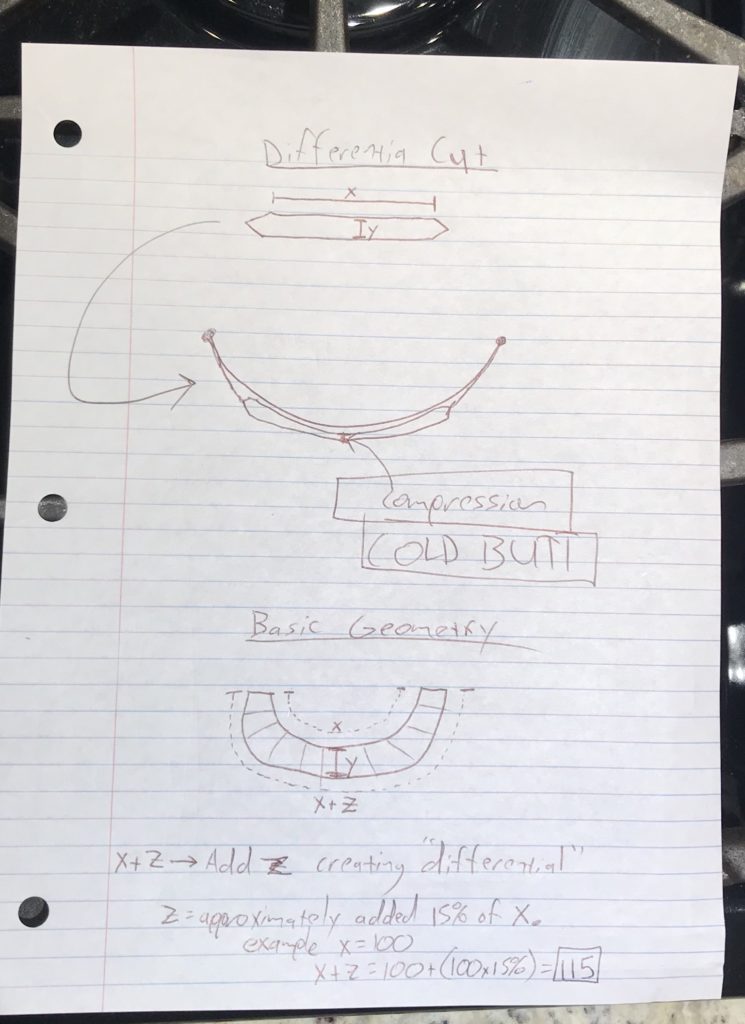 Differentia Cut
x
Iy
Compression
COLD BUTT
Basic Geometry
x
Iy
x+z
x+z → Add z creating "differential"
z = approximately added 15% of x.
example x = 100
x+z = 100+(100x15%) = 115